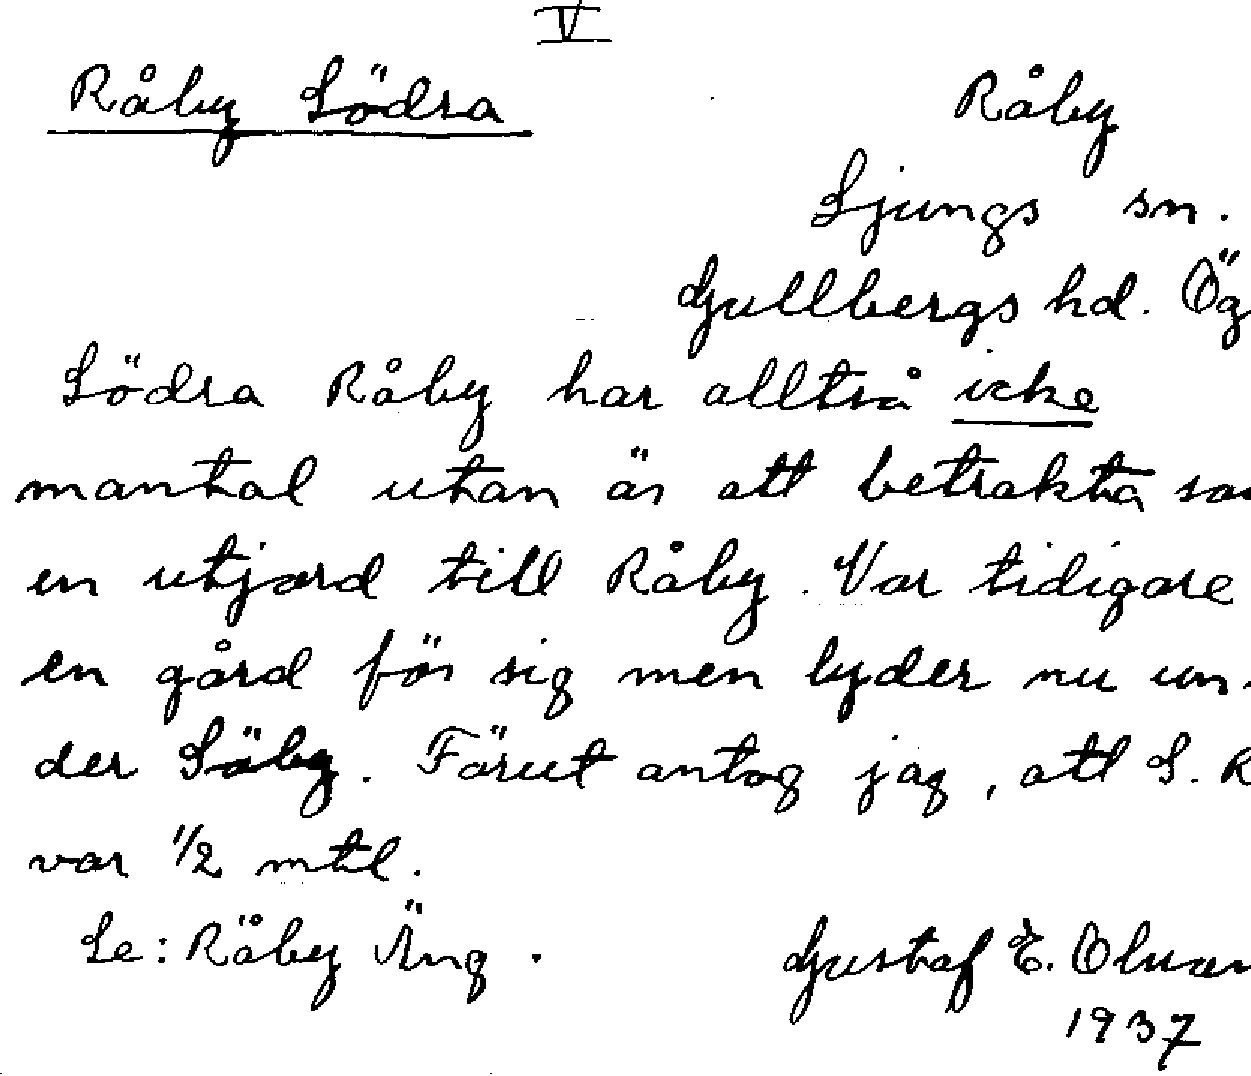 V
Råby Södra
Råby
Ljungs sn.
Gullbergs hd. Ög
Södra Råby har alltså icke
mantal utan är att betrakta so
en utjord till Råby. Var tidigare
en gård för sig men lyder nu un-
der Säby. Förut antog jag, att S. R
var 1/2 mtl.
Se: Råby Äng.
Gustaf E.
1937